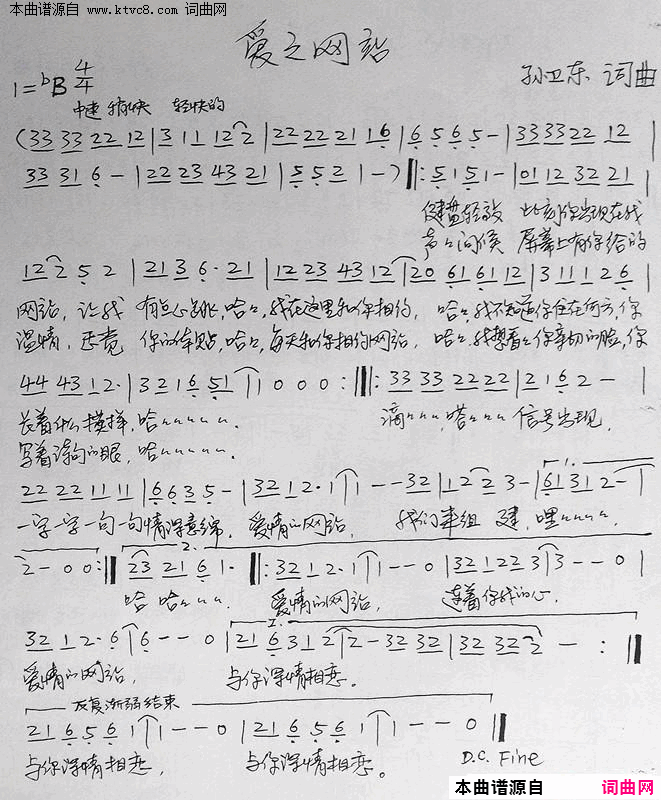 本曲谱源自 www.ktvc8.com 词曲网
爱之网站
1=ᵇB 4/4
孙卫东 词曲
中速 稍快 轻快的
(33 33 22 12 | 3 1 1 12 2 | 22 22 21 16 | 6 5 6 5 - | 33 33 22 12 |
33 31 6 - | 22 23 43 21 | 5 5 2 1 -) ‖: 5 1 5 1 - | 01 12 32 21 |
键盘轻敲 此刻你出现在我
声声问候 屏幕上有你给的
12 2 5 2 | 21 3 6· 21 | 12 23 43 12 | 20 61 61 12 | 3 1 1 1 2 6 |
网站, 让我 有点心跳, 哈哈, 我在这里和你相约, 哈哈, 我不知道你住在何方, 你
温情, 感觉 你的体贴, 哈哈, 每天和你相约网站, 哈哈, 我想看看你亲切的脸, 你
44 43 1 2· | 3 2 1 6 5 1 | 1 0 0 0 :‖: 33 33 22 22 | 2 1 6 2 - |
长着什么模样, 哈
滴 嗒 信号出现,
写着诗句的眼, 哈
22 22 11 11 | 6 6 3 5 - | 32 1 2· 1 | 1 - - 32 | 1 2 2 3 - | 61 31 2 - |
一字一字一句一句情深意绵, 爱情的网站, 我们来组建, 嘿
2 - 0 0 :‖ 23 21 6 1· ‖: 32 1 2· 1 | 1 - - 0 | 32 12 2 3 | 3 - - 0 |
哈 哈 爱情的网站, 连着你我的心,
32 1 2· 6 | 6 - - 0 | 21 6 3 1 2 | 2 - 32 32 | 32 32 2 - :‖
爱情的网站, 与你深情相恋。
反复渐弱结束
21 6 5 6 1 | 1 - - 0 | 21 6 5 6 1 | 1 - - 0 ‖
与你深情相恋, 与你深情相恋。 D.C. Fine
本曲谱源自 词曲网